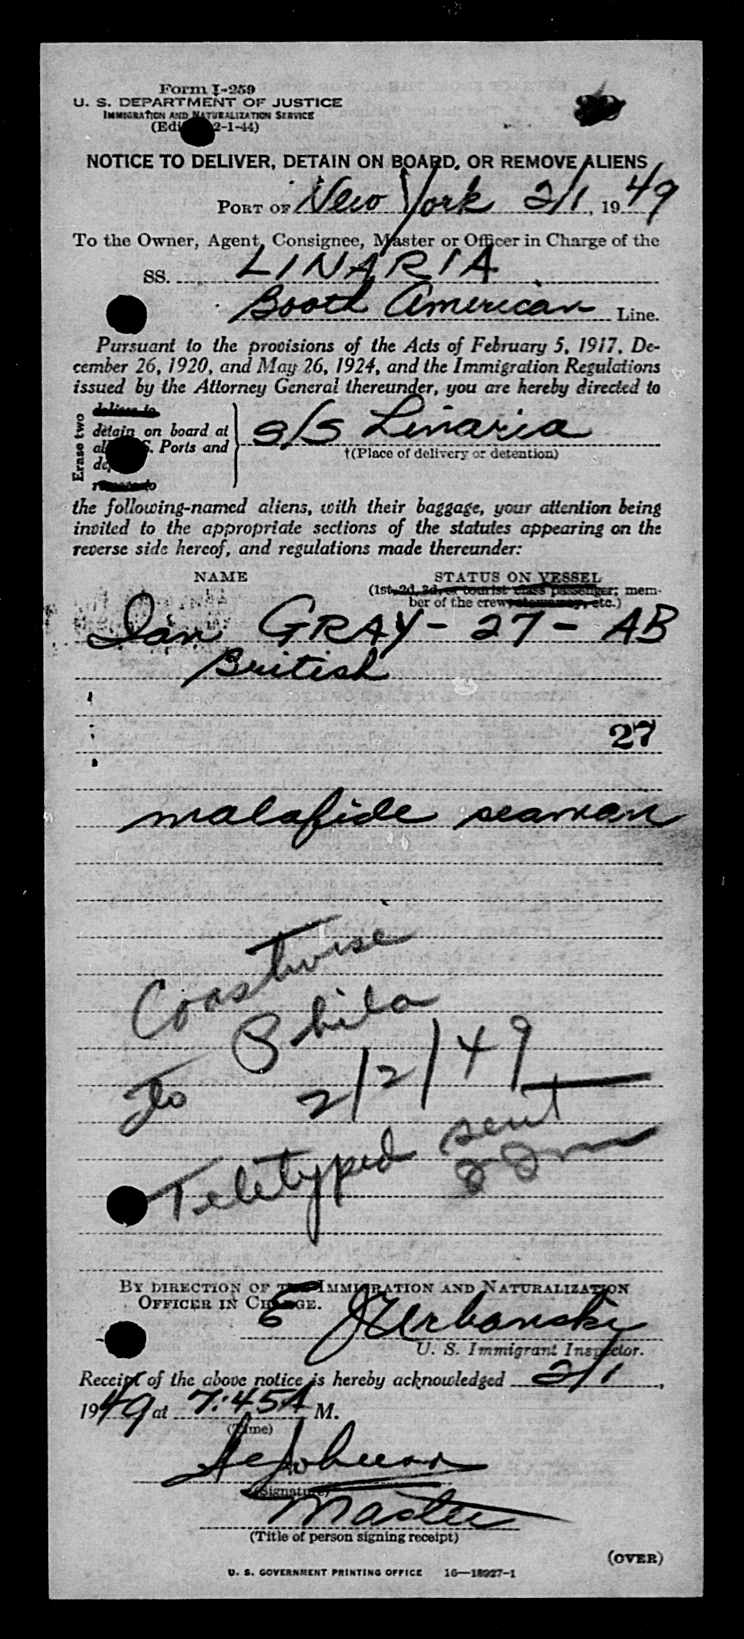 Form I-259
U. S. DEPARTMENT OF JUSTICE
IMMIGRATION AND NATURALIZATION SERVICE
2-1-44)
NOTICE TO DELIVER, DETAIN ON BOARD, OR REMOVE ALIENS
PORT OF New York 2/1, 1949
To the Owner, Agent, Consignee, Master or Officer in Charge of the
SS. LINARIA
Booth American Line.
Pursuant to the provisions of the Acts of February 5, 1917, De-
cember 26, 1920, and May 26, 1924, and the Immigration Regulations
issued by the Attorney General thereunder, you are hereby directed to
Erase two
deliver to
detain on board at
al S. Ports and
S/S Linaria
†(Place of delivery or detention)
the following-named aliens, with their baggage, your attention being
invited to the appropriate sections of the statutes appearing on the
reverse side hereof, and regulations made thereunder:
NAME STATUS ON VESSEL
(1st, 2d, 3d, or tourist class passenger; mem-
ber of the crew, etc.)
Ian GRAY - 27 - AB
British
27
malafide seaman
Coastwise
Phila
To 2/2/49
Teletyped sent
BY DIRECTION OF THE IMMIGRATION AND NATURALIZATION
OFFICER IN CHARGE.
E J Urbanski
U. S. Immigrant Inspector.
Receipt of the above notice is hereby acknowledged 2/1,
1949 at 7:45A M.
(Time)
Johnson
(Signature)
Master
(Title of person signing receipt)
(OVER)
U. S. GOVERNMENT PRINTING OFFICE 16—18927-1